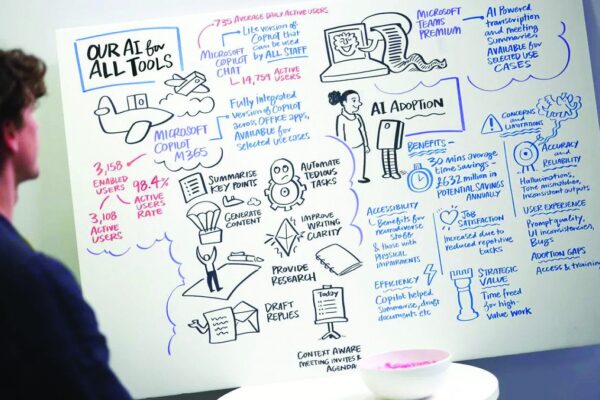 OUR AI for
ALL TOOLS
735 AVERAGE DAILY ACTIVE USERS
Lite version of
Copilot that
can be used
by ALL STAFF
MICROSOFT
COPILOT
CHAT
19,759 ACTIVE
USERS
Fully integrated
version of Copilot
across OFFICE apps,
AVAILABLE for
selected use cases
MICROSOFT
COPILOT
M365
3,158
ENABLED
USERS
98.4%
ACTIVE
USERS
RATE
3,108
ACTIVE
USERS
SUMMARISE
KEY POINTS
AUTOMATE
TEDIOUS
TASKS
GENERATE
CONTENT
IMPROVE
WRITING
CLARITY
PROVIDE
RESEARCH
DRAFT
REPLIES
Today
CONTEXT AWARE
MEETING INVITES &
AGENDA
MICROSOFT
TEAMS
PREMIUM
AI Powered
transcription
and meeting
summaries
AVAILABLE for
SELECTED USE
CASES
AI ADOPTION
BENEFITS
30 mins average
time savings
£632 million in
POTENTIAL SAVINGS
ANNUALLY
ACCESSIBILITY
Benefits for
neurodiverse
staff
& those with
PHYSICAL
IMPAIRMENTS
JOB
SATISFACTION
Increased due to
reduced repetitive
tasks
EFFICIENCY
Copilot helped
summarise, draft
documents etc
STRATEGIC
VALUE
Time freed
for high-
value work
CONCERNS and
LIMITATIONS
ACCURACY
and
RELIABILITY
Hallucinations,
Tone mismatch,
inconsistent outputs
USER EXPERIENCE
Prompt quality,
UI inconsistencies,
Bugs
ADOPTION GAPS
Access & training